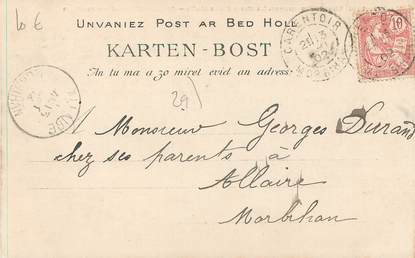 10 €
UNVANIEZ POST AR BED HOLL
KARTEN-BOST
An tu ma a zo miret evid an adress:
CARENTOIR
MORBIHAN
10
29
ALLAIRE
MORBIHAN
A Monsieur Georges Durand
chez ses parents à
Allaire
Morbihan